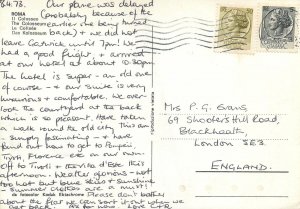 8.4.73. Our plane was delayed
(probably because of the
earlier one being turned
back) & we did not
leave Gatwick until 7pm! We
had a good flight & arrived
at our hotel at about 10.30pm.
The hotel is super - an old one
of course - & our suite is very
luxurious & comfortable. We over-
look the courtyard at the back
which is so pleasant. Have taken
a walk round the old City this am
- simply fascinating - & have
found out how to get to Pompeii,
Tivoli, Florence etc on our own.
off to Tivoli & Villa d'Este this
afternoon. Weather glorious - not
too hot but blue skies & sunshine
- Summer clothes are a must!
Please don't bother
about the flat we can sort it out when we
get back.
ROMA
Il Colosseo
The Colosseum
Le Colisée
Das Kolosseum
Mrs P. G. Evans,
69 Shooter's Hill Road,
Blackheath,
London SE3.
ENGLAND.
Kodak Ektachrome